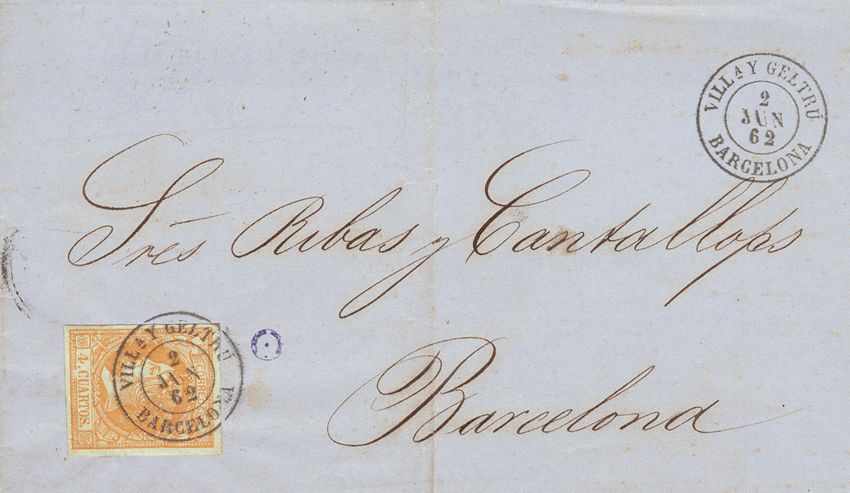 VILLA Y GELTRÚ
2
JUN
62
BARCELONA
Srēs Ribas y Cantallops
Barcelona
VILLA Y GELTRU
2
JUN
62
BARCELONA
4. CUARTOS.